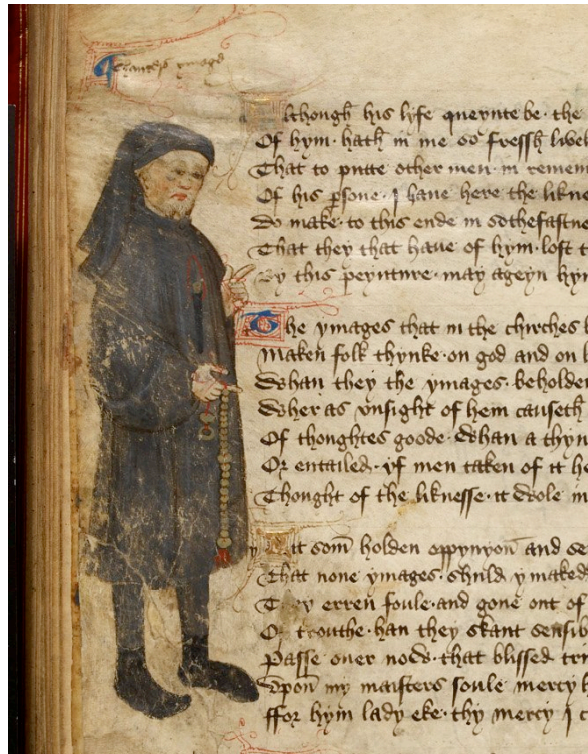 Chaucers ymage
Although his lyfe queynte be · the
Of hym · hath in me so fressh livel
That to putte other men in remem
Of his psone · I haue here the likne
Do make · to this ende in sothefastne
That they that haue of hym · lost t
By this peynture · may ageyn hym
The ymages that in the chirches
Maken folk thynke · on god and on
Whan they the ymages · beholden
Wher as vnsight of hem causeth
Of thoughtes goode · Whan a thyn
Or entailed · yf men taken of it he
Thought of the liknesse · it wole in
Yit som holden oppynyon and se
That none ymages · shuld ymaked
They erren foule · and gone out of
Of trouthe · han they skant sensib
Passe ouer now · that blissed tri
Vpon my maisters soule mercy
ffor hym lady eke · thy mercy I c